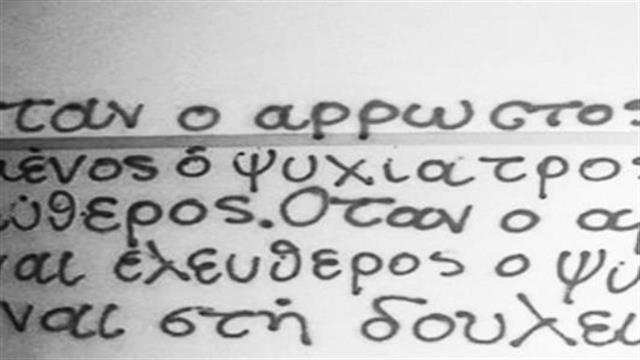 ταν ο αρρωστος
μένος ὁ ψυχίατρος
ύθερος. Οταν ο αρ
ναι ἐλευθερος ο ψυ
ναι στή δουλει